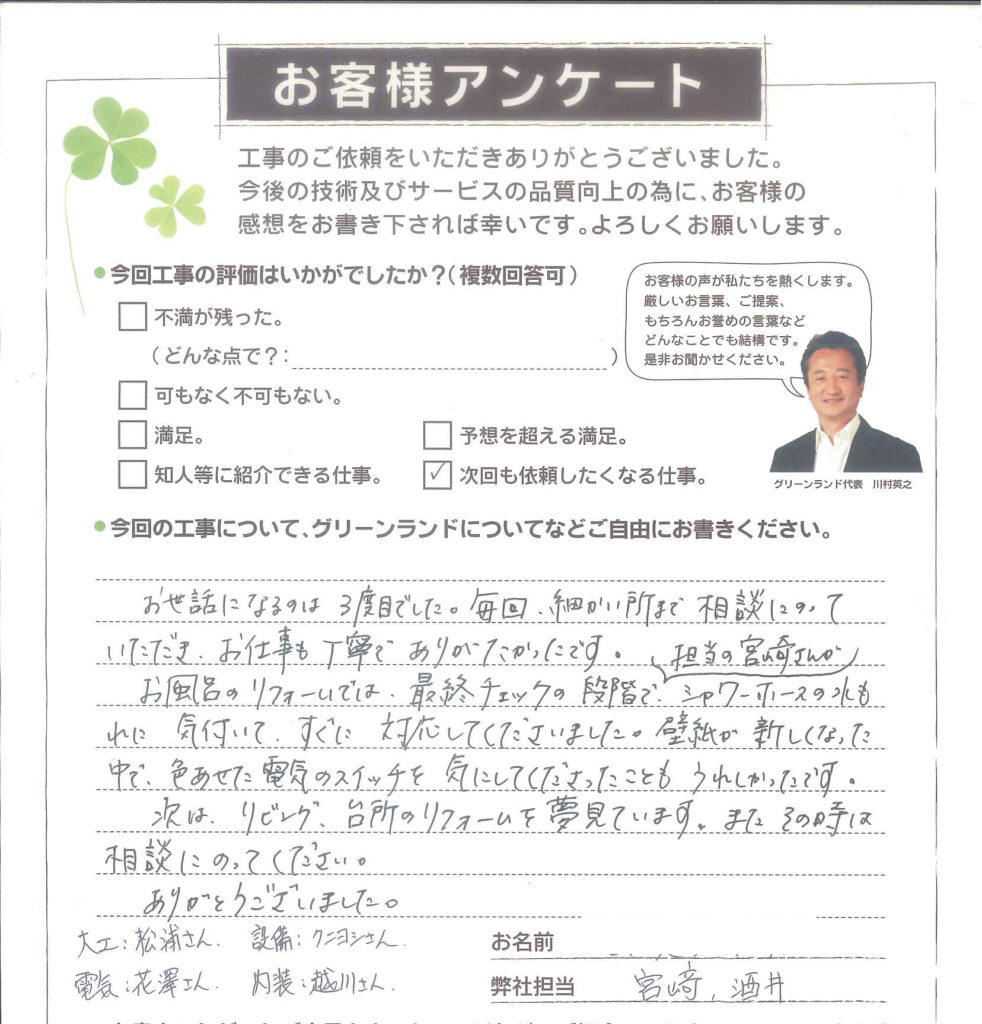 お客様アンケート
工事のご依頼をいただきありがとうございました。
今後の技術及びサービスの品質向上の為に、お客様の
感想をお書き下されば幸いです。よろしくお願いします。
●今回工事の評価はいかがでしたか?(複数回答可)
不満が残った。
(どんな点で?: )
可もなく不可もない。
満足。
予想を超える満足。
知人等に紹介できる仕事。
✓ 次回も依頼したくなる仕事。
お客様の声が私たちを熱くします。
厳しいお言葉、ご提案、
もちろんお誉めの言葉など
どんなことでも結構です。
是非お聞かせください。
グリーンランド代表 川村英之
●今回の工事について、グリーンランドについてなどご自由にお書きください。
お世話になるのは 3度目でした。毎回、細かい所まで 相談にのって
いただき、お仕事も丁寧で ありがたかったです。
担当の宮崎さんが
お風呂のリフォームでは、最終チェックの段階で、シャワーホースの水も
れに 気付いて、すぐに 対応してくださいました。壁紙が 新しくなった
中で、色あせた電気のスイッチを 気にしてくださったことも うれしかったです。
次は、リビング、台所のリフォームを夢見ています。また その時は
相談に のってください。
ありがとうございました。
大工:松浦さん. 設備:クニヨシさん.
電気:花澤さん. 内装:越川さん.
お名前
弊社担当 宮﨑, 酒井